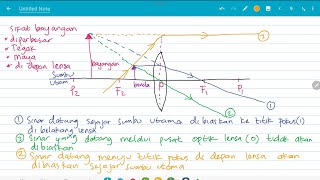 Untitled Note
sifat bayangan
* diperbesar
* Tegak
* maya
* di depan lensa
bayangan
Sumbu
Utama
P2
F2
benda
O
F1
P1
3
1
2
① Sinar datang sejajar sumbu utama dibiaskan ke titik fokus (1)
di belakang lensa
② Sinar yang datang melalui pusat optik lensa (O) tidak akan
dibiaskan
③ Sinar datang menuju titik fokus di depan lensa akan
dibiaskan sejajar sumbu utama